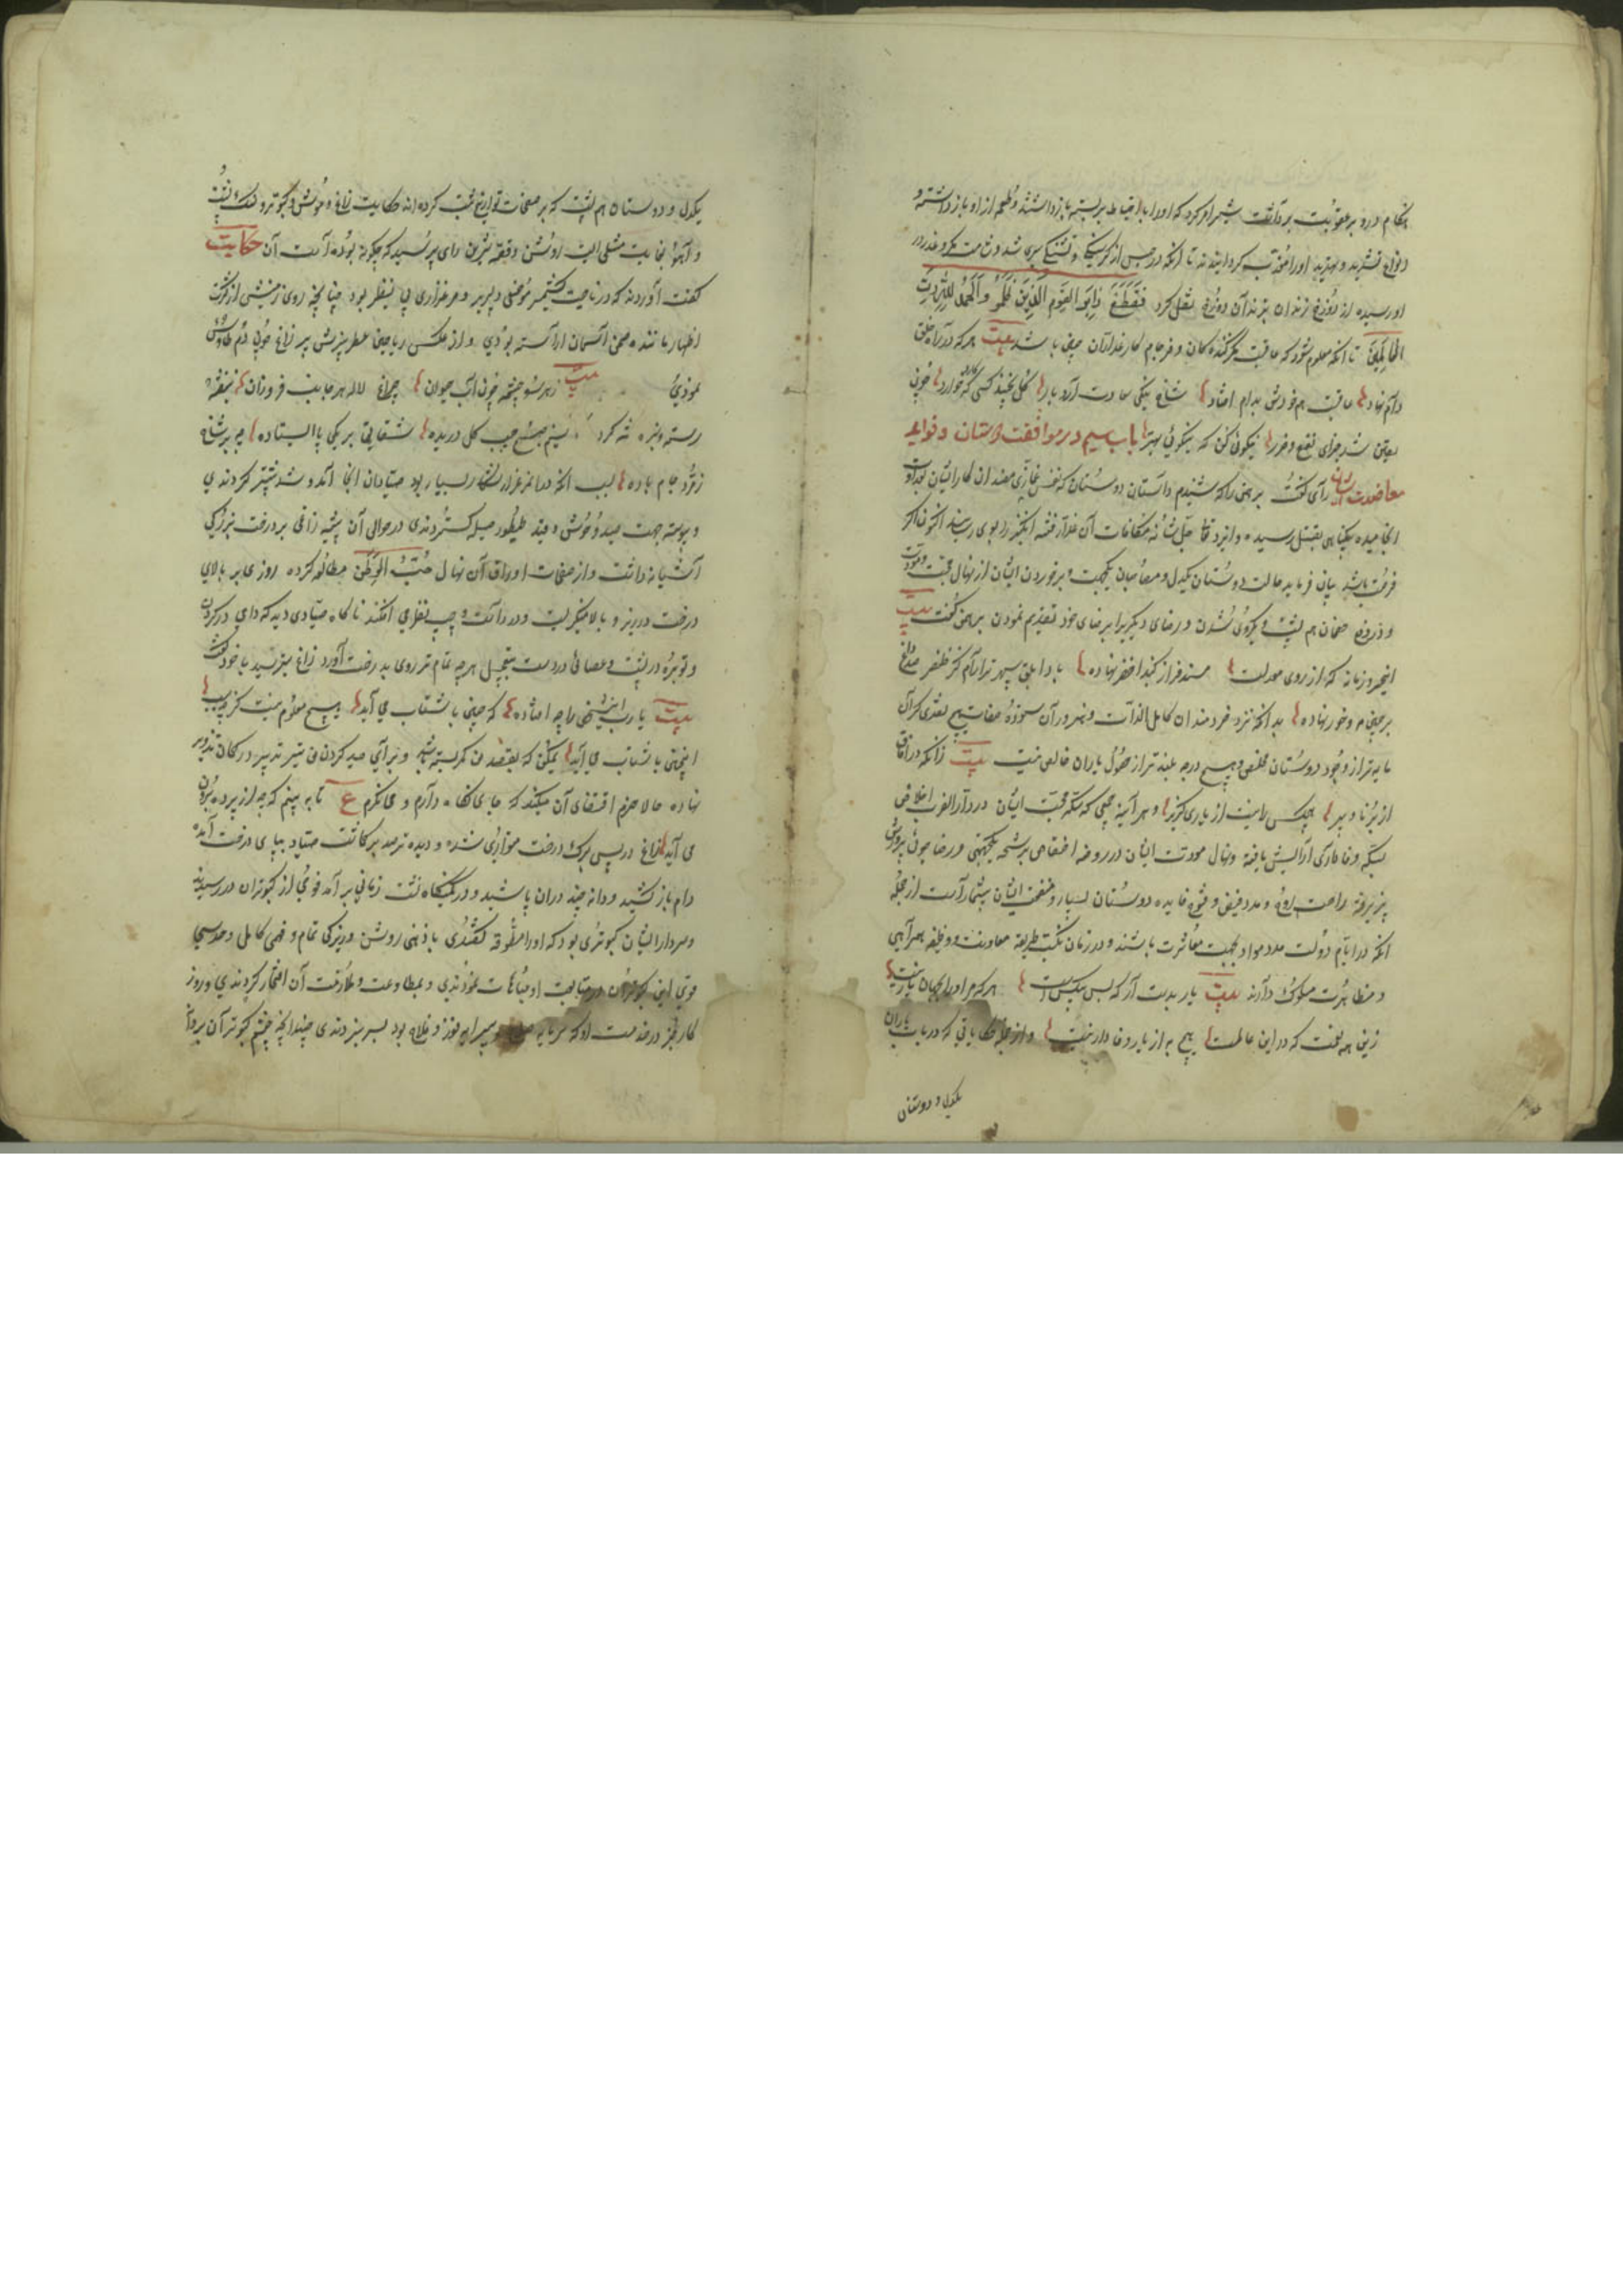 هنگام درد بر عقوبت برداشت شیر امر کرد که او را باحتیاط بر بسته باز داشتند و طعمه از او باز داشته و
انواع تشدید و تهدید او را معذب گردانیدند تا آنکه در حبس از گرسنگی و تشنگی سپری شد و شامت مکر و غدر در
او رسیده از دوزخ زندان بزندان دوزخ نقل کرد فَقُطِعَ دَابِرُ القَومِ الَّذِینَ ظَلَمُو وَالحَمدُ لِلّهِ رَبِّ
العَالَمِینَ تا آنکه معلوم شود که عاقبت مکر کنندگان و فرجام کار غداران چنین باشد بیت هر که در راه خلق
دام نهاد عاقبت هم خودش بدام افتاد شاخ نیکی سعادت آرد بار گل نچیند کسی که کارد خار چون
یقین شد جزای نفع و ضرر نیکوئی کن که نیکوئی بهتر باب سیم در موافقت دوستان و فواید
معاضدت ایشان رای گفت برهمن را که شنیدم داستان دوستان که بنمّازی مفسدان کار ایشان بعداوت
انجامیده بیگناهی بقتل رسیده و ایزد تعا جلّ شانه مکافات آن غدار فتنه انگیز را بوی رسانید اکنون اگر
فرصت باشد بیان فرماید حالت دوستان یکدل و مصاحبان یکجهت و برخوردن ایشان از نهال محبت و مودت
و در دفع خصمان هم پشت و یکروی شدن و رضای دیگری را بر رضای خود تقدیم نمودن برهمن گفت بیت
ایخسرو زمانه که از روی معدلت مسند فراز گنبد اخضر نهاده با داابلق سپهر ترا رام کز ظفر داغ
بر جبین مه و خور نهاده بدانکه نزد خردمندان کامل الذات و هنروران ستوده صفات هیچ نقدی گران
مایه تر از وجود دوستان مخلص و هیچ درجه بلندتر از حصول یاران خالص نیست بیت زانکه در آفاق
از برنا و پیر هیچکس را نیست از یاری گزیر و هر آینه جمعی که سکه محبت ایشان در دارالضرب اخلاص
بسکه وفاداری آرایش یافته و نهال مودت ایشان در روضه اختصاص برشحه یکجهتی و رضا جوئی پرورش
پذیرفته راحت روح و مدد فیض و فتوح فایده دوستان بسیار و منفعت ایشان بیشمار است از جمله
آنکه در ایام دولت مدد مواد بهجت معاشرت باشند و در زمان نکبت طریقه معاونت و وظیفه همراهی
و مظاهرت مسلوک دارند بیت یار بدست آر که بس بیکس است هر که مر او را بجهان یار نیست
زین همه نعمت که در این عالم است هیچ به از یار وفادار نیست و از جمله حکایاتی که در باب یاران
یکدل و دوستان
یکدل و دوستان هم پشت که بر صفحات تواریخ ثبت کرده اند حکایت زاغ و موش و کبوتر و سنگ پشت
و آهو بغایت مثلی است روشن و قصه شیرین رای پرسید که چگونه بوده است آن حکایت
گفت آورده اند که در ناحیت کشمیر موضعی دلپذیر و مرغزاری بی نظیر بود چنانچه روی زمینش از کثرت
ازهار مانند صحن آسمان آراسته بودی و از عکس ریاحین عطر بیزش پر زاغ چون دم طاوس
نمودی بیت ز هر سو چشمه چون آب حیوان چراغ لاله هر جانب فروزان بنفشه
رسته و سبزه ته کرد نسیم صبح جیب گل دریده شقایق بر یکی پا ایستاده چو بر شاخ
زمرد جام باده بسبب آنکه در آن مرغزار شکار بسیار بود صیادان آنجا آمد و شد بیشتر کردندی
و پیوسته جهت صید وحوش و قید طیور حیله گستردندی در حوالی آن بیشه زاغی بر درخت بزرگی
آشیانه داشت و از صفحات اوراق آن نهال حُبُّ الوَطَن مطالعه کرده روزی بر بالای
درخت در زیر و بالا مینگریست و در راست و چپ نظر می افکند ناگاه صیادی دید که دامی در گردن
و توبره در پشت و عصائی در دست بتعجیل هر چه تمام تر روی بدرخت آورد زاغ بترسید با خود گفت
بیت یا رب این شخص را چه افتاده که چنین با شتاب می آید هیچ معلوم نیست کز چه سبب
اینچنین با شتاب می آید یمکن که بقصد من کمر بسته باشد و برای صید کردن من تیر تدبیر در کمان تزویر
نهاده حالا حزم اقتضای آن میکند که جای نگاه دارم و می نگرم ع تا ببینم که چه از پرده برون
می آید زاغ در پس برگ درخت متواری شده و دیده ترصد بر گماشت صیاد بپای درخت آمده
دام باز کشید و دانه چند در آن پاشید و در کمینگاه نشست زمانی بر آمد فوجی از کبوتران در رسیدند
و سردار ایشان کبوتری بود که او را مطوقه گفتندی با ذهنی روشن و زیرکی تمام و فهمی کامل و حدسی
قوی این کبوتران بمتابعت او مباهات نمودندی و بمطاوعت و ملازمت آن افتخار کردندی و روز
کار جز در خدمت او که سرمایه صلاح و پیرایه فوز و فلاح بود بسر نبردندی چندانکه چشم کبوتران بر دانه